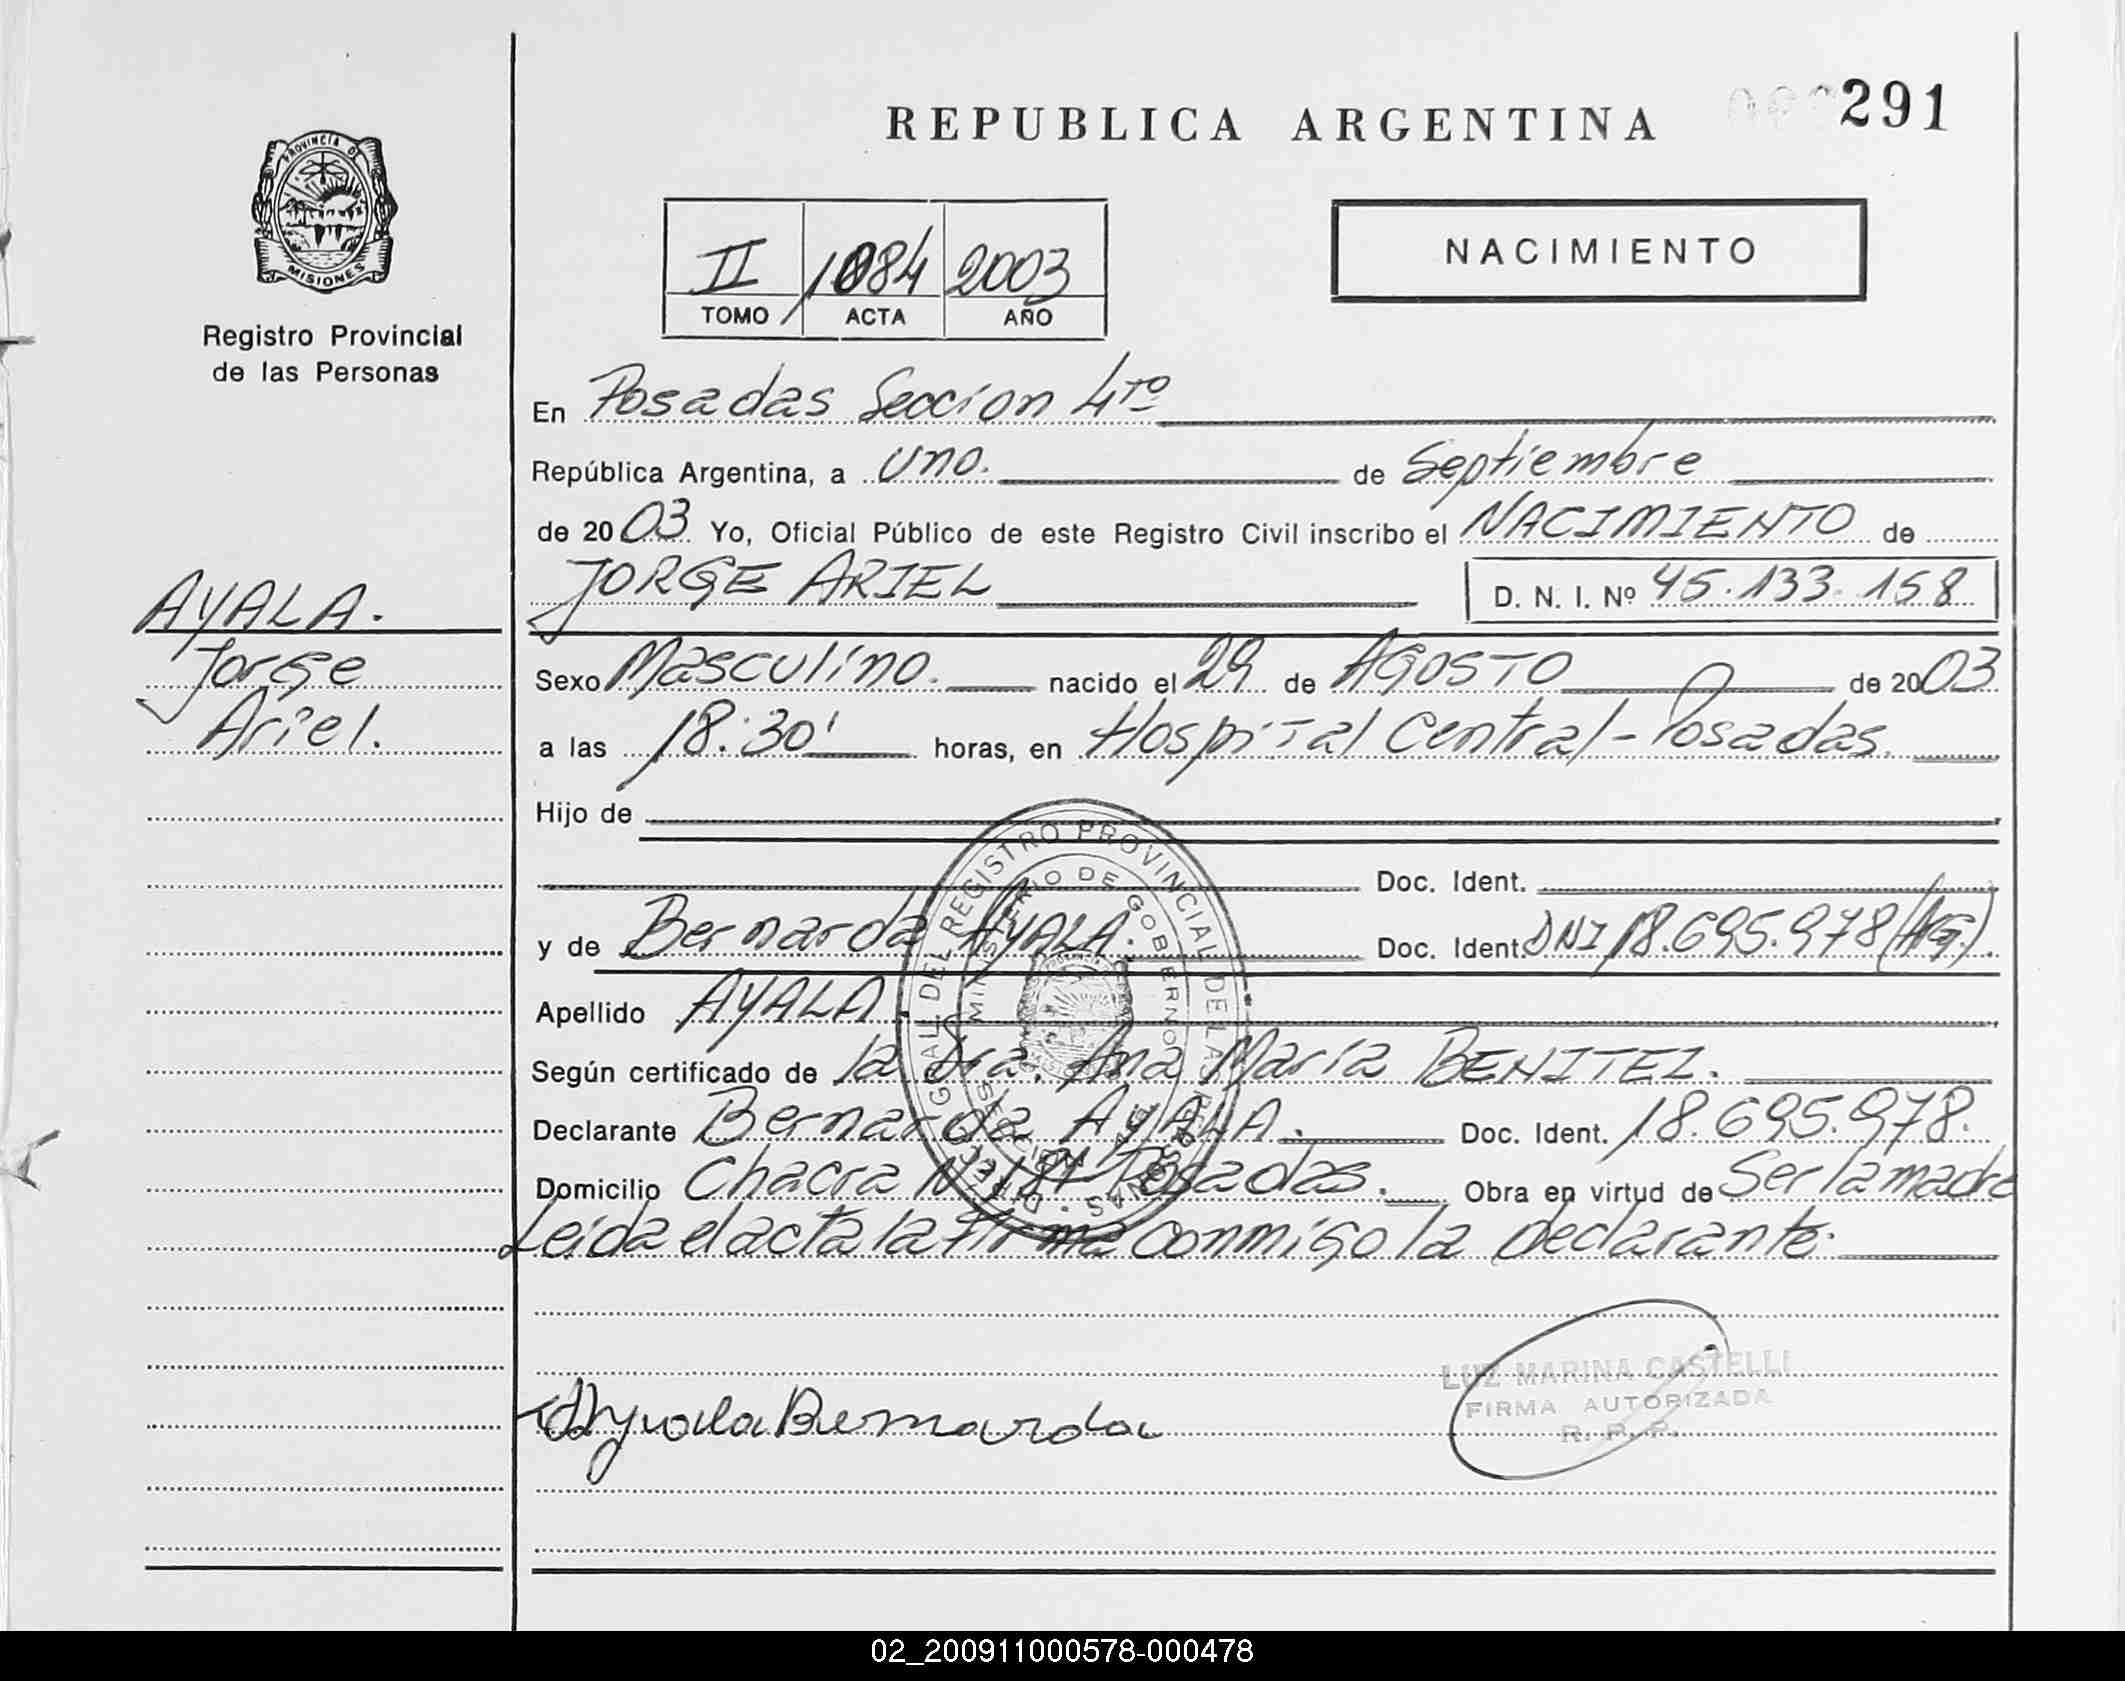 REPUBLICA ARGENTINA
291
PROVINCIA DE
MISIONES
Registro Provincial
de las Personas
II 1084 2003
TOMO ACTA AÑO
NACIMIENTO
En Posadas Seccion 4to
República Argentina, a uno. de Septiembre
de 2003 Yo, Oficial Público de este Registro Civil inscribo el NACIMIENTO de
JORGE ARIEL D. N. I. Nº 45.133.158
AYALA.
Jorge
Ariel.
Sexo Masculino. nacido el 29 de AGOSTO de 2003
a las 18:30' horas, en Hospital Central - Posadas.
Hijo de
Doc. Ident.
y de Bernarda AYALA. Doc. Ident. DNI 18.695.978 (Arg).
Apellido AYALA.
Según certificado de la Dra. Ana María BENITEZ.
Declarante Bernarda AYALA. Doc. Ident. 18.695.978.
Domicilio Chacra Posadas. Obra en virtud de Ser la madre
Leida el acta la firma conmigo la declarante.
GRAL DEL REGISTRO PROVINCIAL DE LAS
MINISTERIO DE GOBIERNO
Ayala Bernarda
LUZ MARINA CASTELLI
FIRMA AUTORIZADA
R. P. P.
02_200911000578-000478